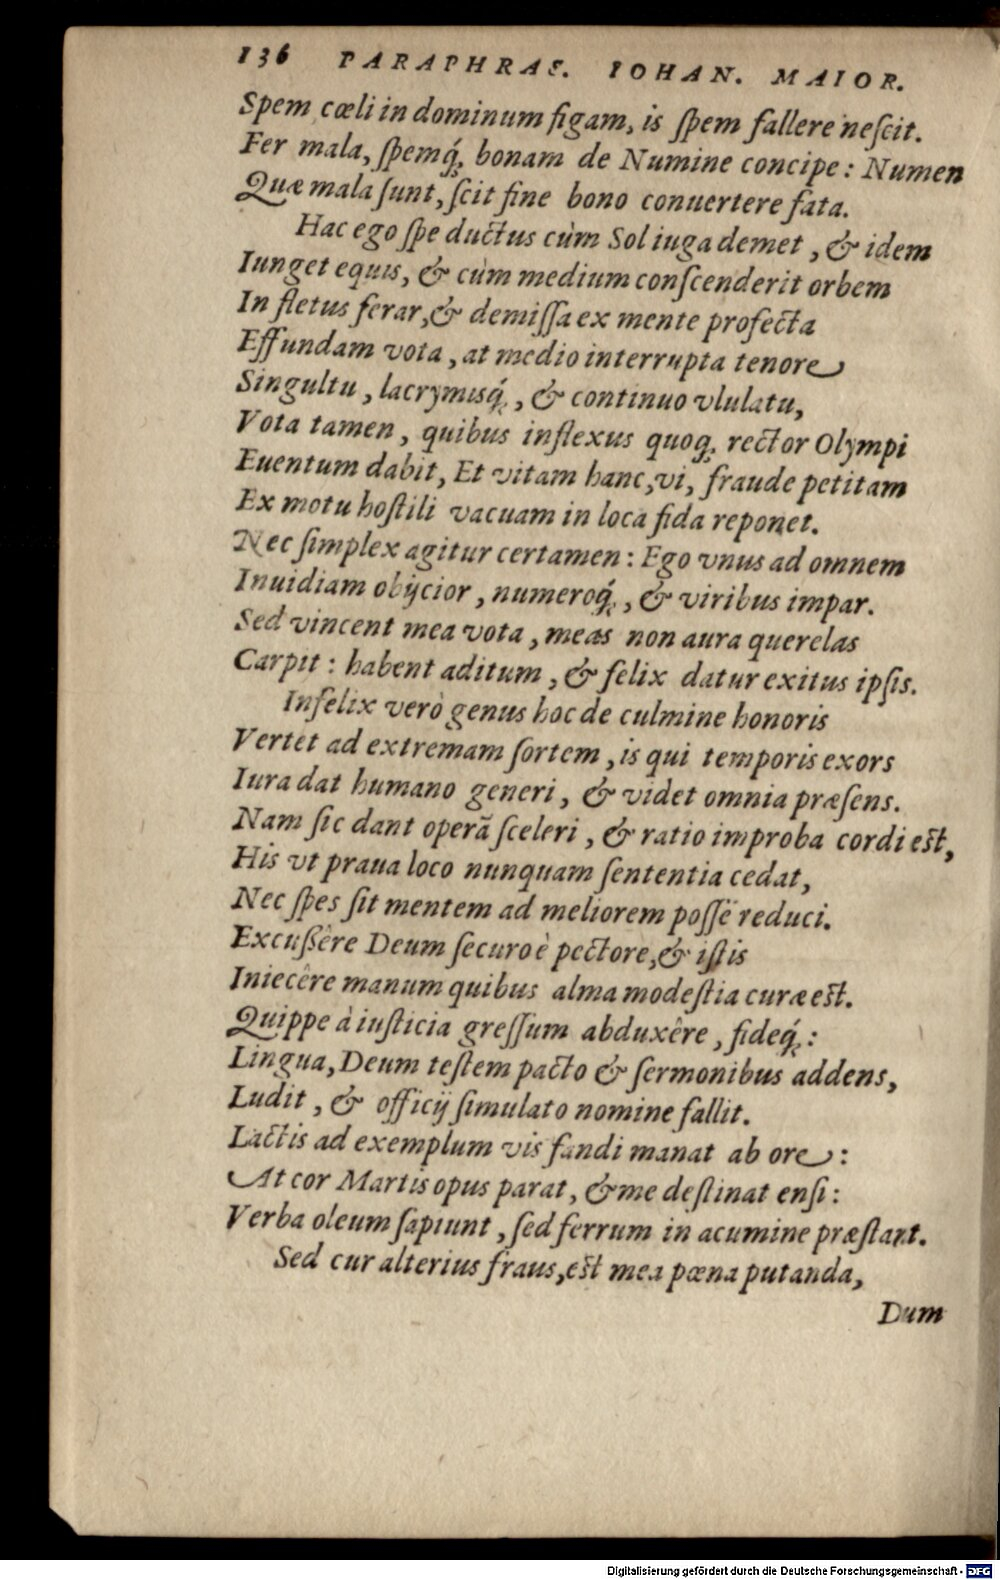 136 PARAPHRAS. IOHAN. MAIOR.
Spem cœli in dominum figam, is ſpem fallere neſcit.
Fer mala, ſpemq́; bonam de Numine concipe: Numen
Quæ mala ſunt, ſcit fine bono conuertere fata.
Hac ego ſpe ductus cùm Sol iuga demet, & idem
Iunget equis, & cùm medium conſcenderit orbem
In fletus ferar, & demiſſa ex mente profecta
Effundam vota, at medio interrupta tenore
Singultu, lacrymisq́;, & continuo vlulatu,
Vota tamen, quibus inflexus quoq; rector Olympi
Euentum dabit, Et vitam hanc, vi, fraude petitam
Ex motu hoſtili vacuam in loca fida reponet.
Nec ſimplex agitur certamen: Ego vnus ad omnem
Inuidiam obijcior, numeroq́;, & viribus impar.
Sed vincent mea vota, meas non aura querelas
Carpit: habent aditum, & felix datur exitus ipſis.
Infelix verò genus hoc de culmine honoris
Vertet ad extremam ſortem, is qui temporis exors
Iura dat humano generi, & videt omnia præſens.
Nam ſic dant operã ſceleri, & ratio improba cordi est,
His vt praua loco nunquam ſententia cedat,
Nec ſpes ſit mentem ad meliorem poſſë reduci.
Excußêre Deum ſecuro è pectore, & iſtis
Iniecêre manum quibus alma modeſtia curæ est.
Quippe à iuſticia greſſum abduxêre, fideq́;:
Lingua, Deum teſtem pacto & ſermonibus addens,
Ludit, & officij ſimulato nomine fallit.
Lactis ad exemplum vis fandi manat ab ore:
At cor Martis opus parat, & me deſtinat enſi:
Verba oleum ſapiunt, ſed ferrum in acumine præſtant.
Sed cur alterius fraus, est mea pœna putanda,
Dum
Digitalisierung gefördert durch die Deutsche Forschungsgemeinschaft - DFG